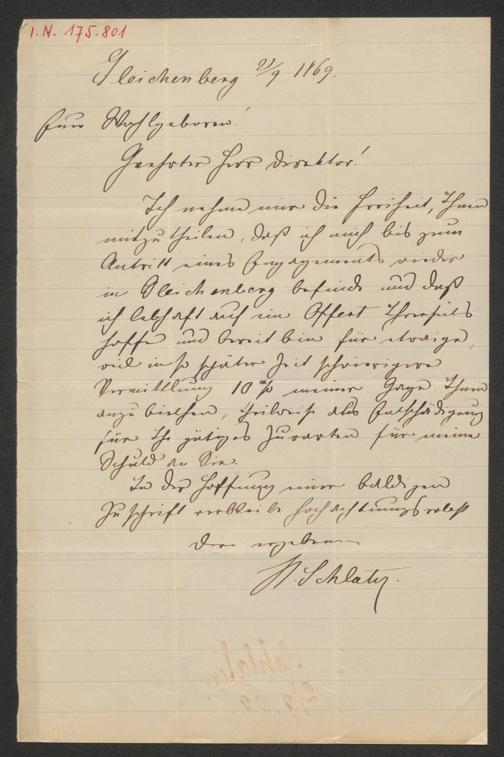 I.N. 175.801
Gleichenberg 21/9 1869.
Euer Wohlgeboren!
Geehrter Herr Direktor!
Ich nehme mir die Freiheit, Ihnen
mitzutheilen, daß ich mich bis zum
Antritt eines Engagements wieder
in Gleichenberg befinde und daß
ich lebhaft auf ein Offert Ihrerseits
hoffe und bereit bin für etwaige,
weil in so später Zeit schwierigere
Vermittlung 10 % meiner Gage Ihnen
anzubiethen, theilweise als Entschädigung
für Ihr gütiges Zuwarten für meine
Schuld an Sie.
In der Hoffnung einer baldigen
Zuschrift verbleibe hochachtungsvollst
Ihr ergebener
Schlatz.